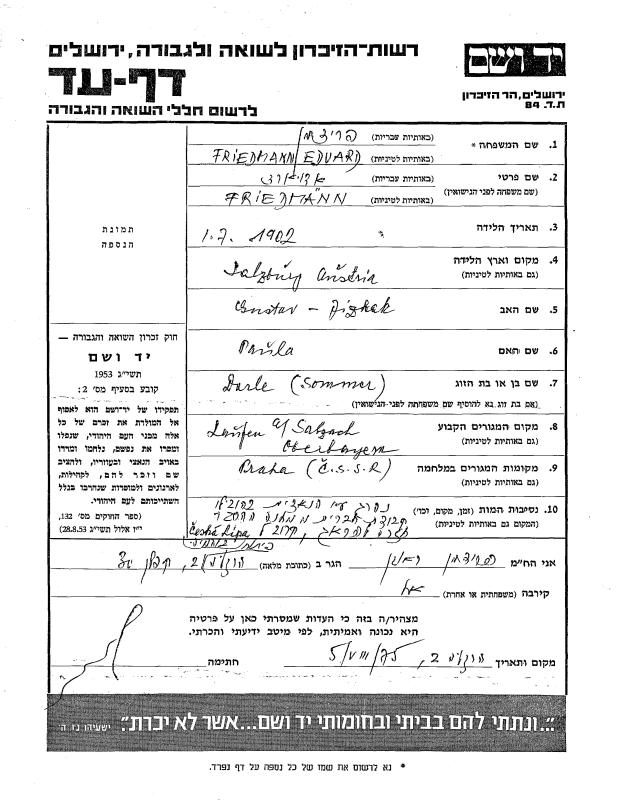 רשות-הזיכרון לשואה ולגבורה, ירושלים
יד ושם
דף-עד
ירושלים, הר הזיכרון
ת.ד. 84
לרשום חללי השואה והגבורה
1. שם המשפחה * (באותיות עבריות)
(באותיות לטיניות) FRIEDMANN EDUARD
2. שם פרטי (באותיות עבריות)
(שם משפחה לפני הנישואין) (באותיות לטיניות) FRIEDMANN
תמונת
הנספה
3. תאריך הלידה 1.7. 1902
4. מקום וארץ הלידה
(גם באותיות לטיניות) Salzburg Austria
5. שם האב Gustav – Jizhak
6. שם האם Paula
חוק זכרון השואה והגבורה —
יד ושם
תשי״ג 1953
קובע בסעיף מס׳ 2:
תפקידו של יד-ושם הוא לאסוף
אל המולדת את זכרם של כל
אלה מבני העם היהודי, שנפלו
ומסרו את נפשם, נלחמו ומרדו
באויב הנאצי ובעוזריו, ולהציב
שם וזכר להם, לקהילות,
לארגונים ולמוסדות שנחרבו בגלל
השתייכותם לעם היהודי.
(ספר החוקים מס׳ 132,
י״ז אלול תשי״ג 28.8.53)
7. שם בן או בת הזוג (Sommer)
(אם בת זוג נא להוסיף שם משפחתה לפני-הנישואין)
8. מקום המגורים הקבוע
(גם באותיות לטיניות) Laufen a/ Salzach
Oberbayern
9. מקומות המגורים במלחמה
(גם באותיות לטיניות) Praha (Č.S.S.R)
10. נסיבות המות (זמן, מקום, וכו׳)
(המקום גם באותיות לטיניות) Česká Lípa
אני החי״מ פרידמן הגר ב (כתובת מלאה)
קירבה (משפחתית או אחרת) אח
מצהיר/ה בזה כי העדות שמסרתי כאן על פרטיה
היא נכונה ואמיתית, לפי מיטב ידיעתי והכרתי.
מקום ותאריך חתימה
״...ונתתי להם בביתי ובחומותי יד ושם...אשר לא יכרת״. ישעיהו נו ה
* נא לרשום את שמו של כל נספה על דף נפרד.